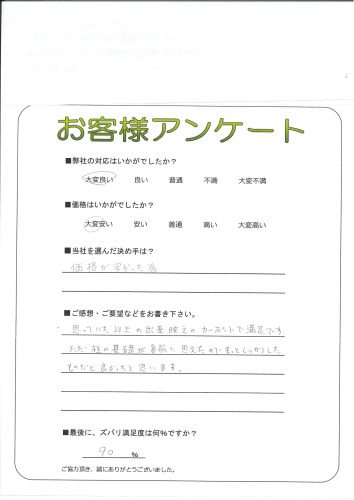 お客様アンケート
■弊社の対応はいかがでしたか?
大変良い 良い 普通 不満 大変不満
■価格はいかがでしたか?
大変安い 安い 普通 高い 大変高い
■当社を選んだ決め手は?
価格が安かった為
■ご感想・ご要望などをお書き下さい。
思っていた以上の出来映えのカーポートで満足です。
ただ柱の基礎が貧弱に思えたのでもっとしっかりした
ものだと良かったと思います。
■最後に、ズバリ満足度は何%ですか?
90 %
ご協力頂き、誠にありがとうございました。